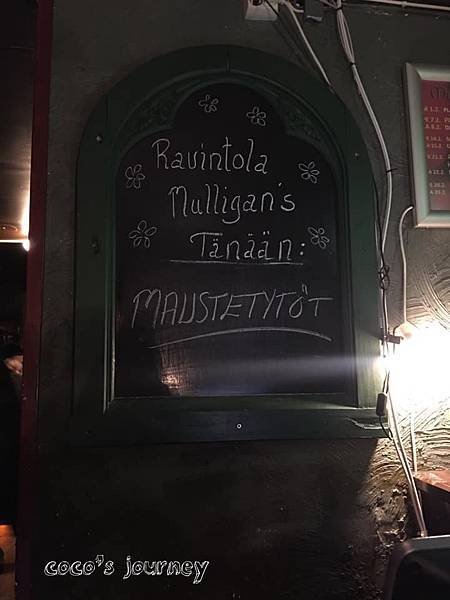 Ravintola
Mulligan's
Tänään:
MAUSTETYTÖT
coco's journey